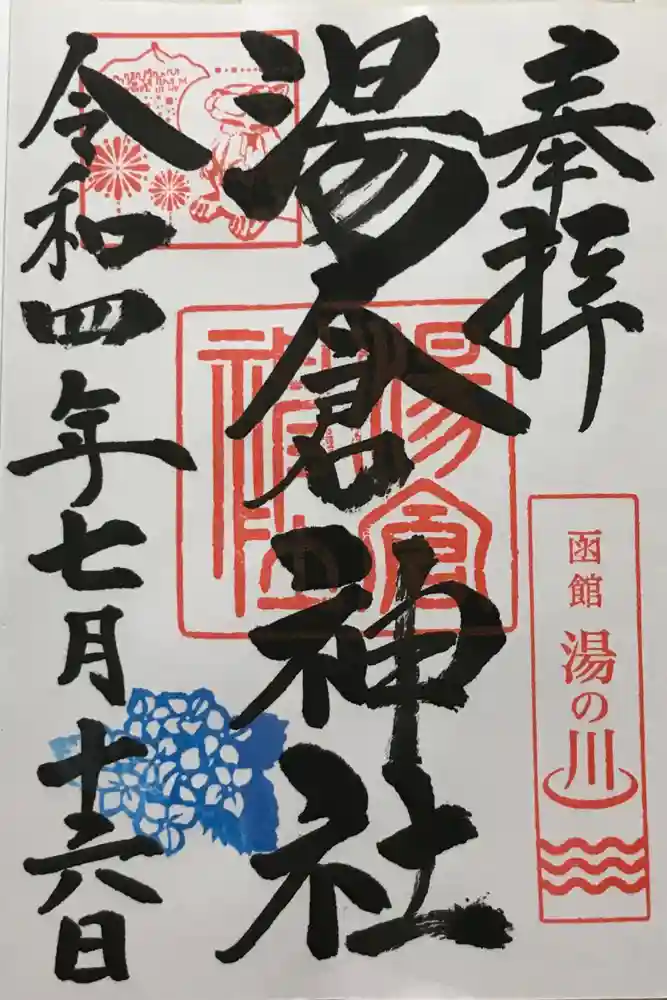 奉拝
函館 湯の川
湯倉神社
湯倉神社
令和四年七月十六日